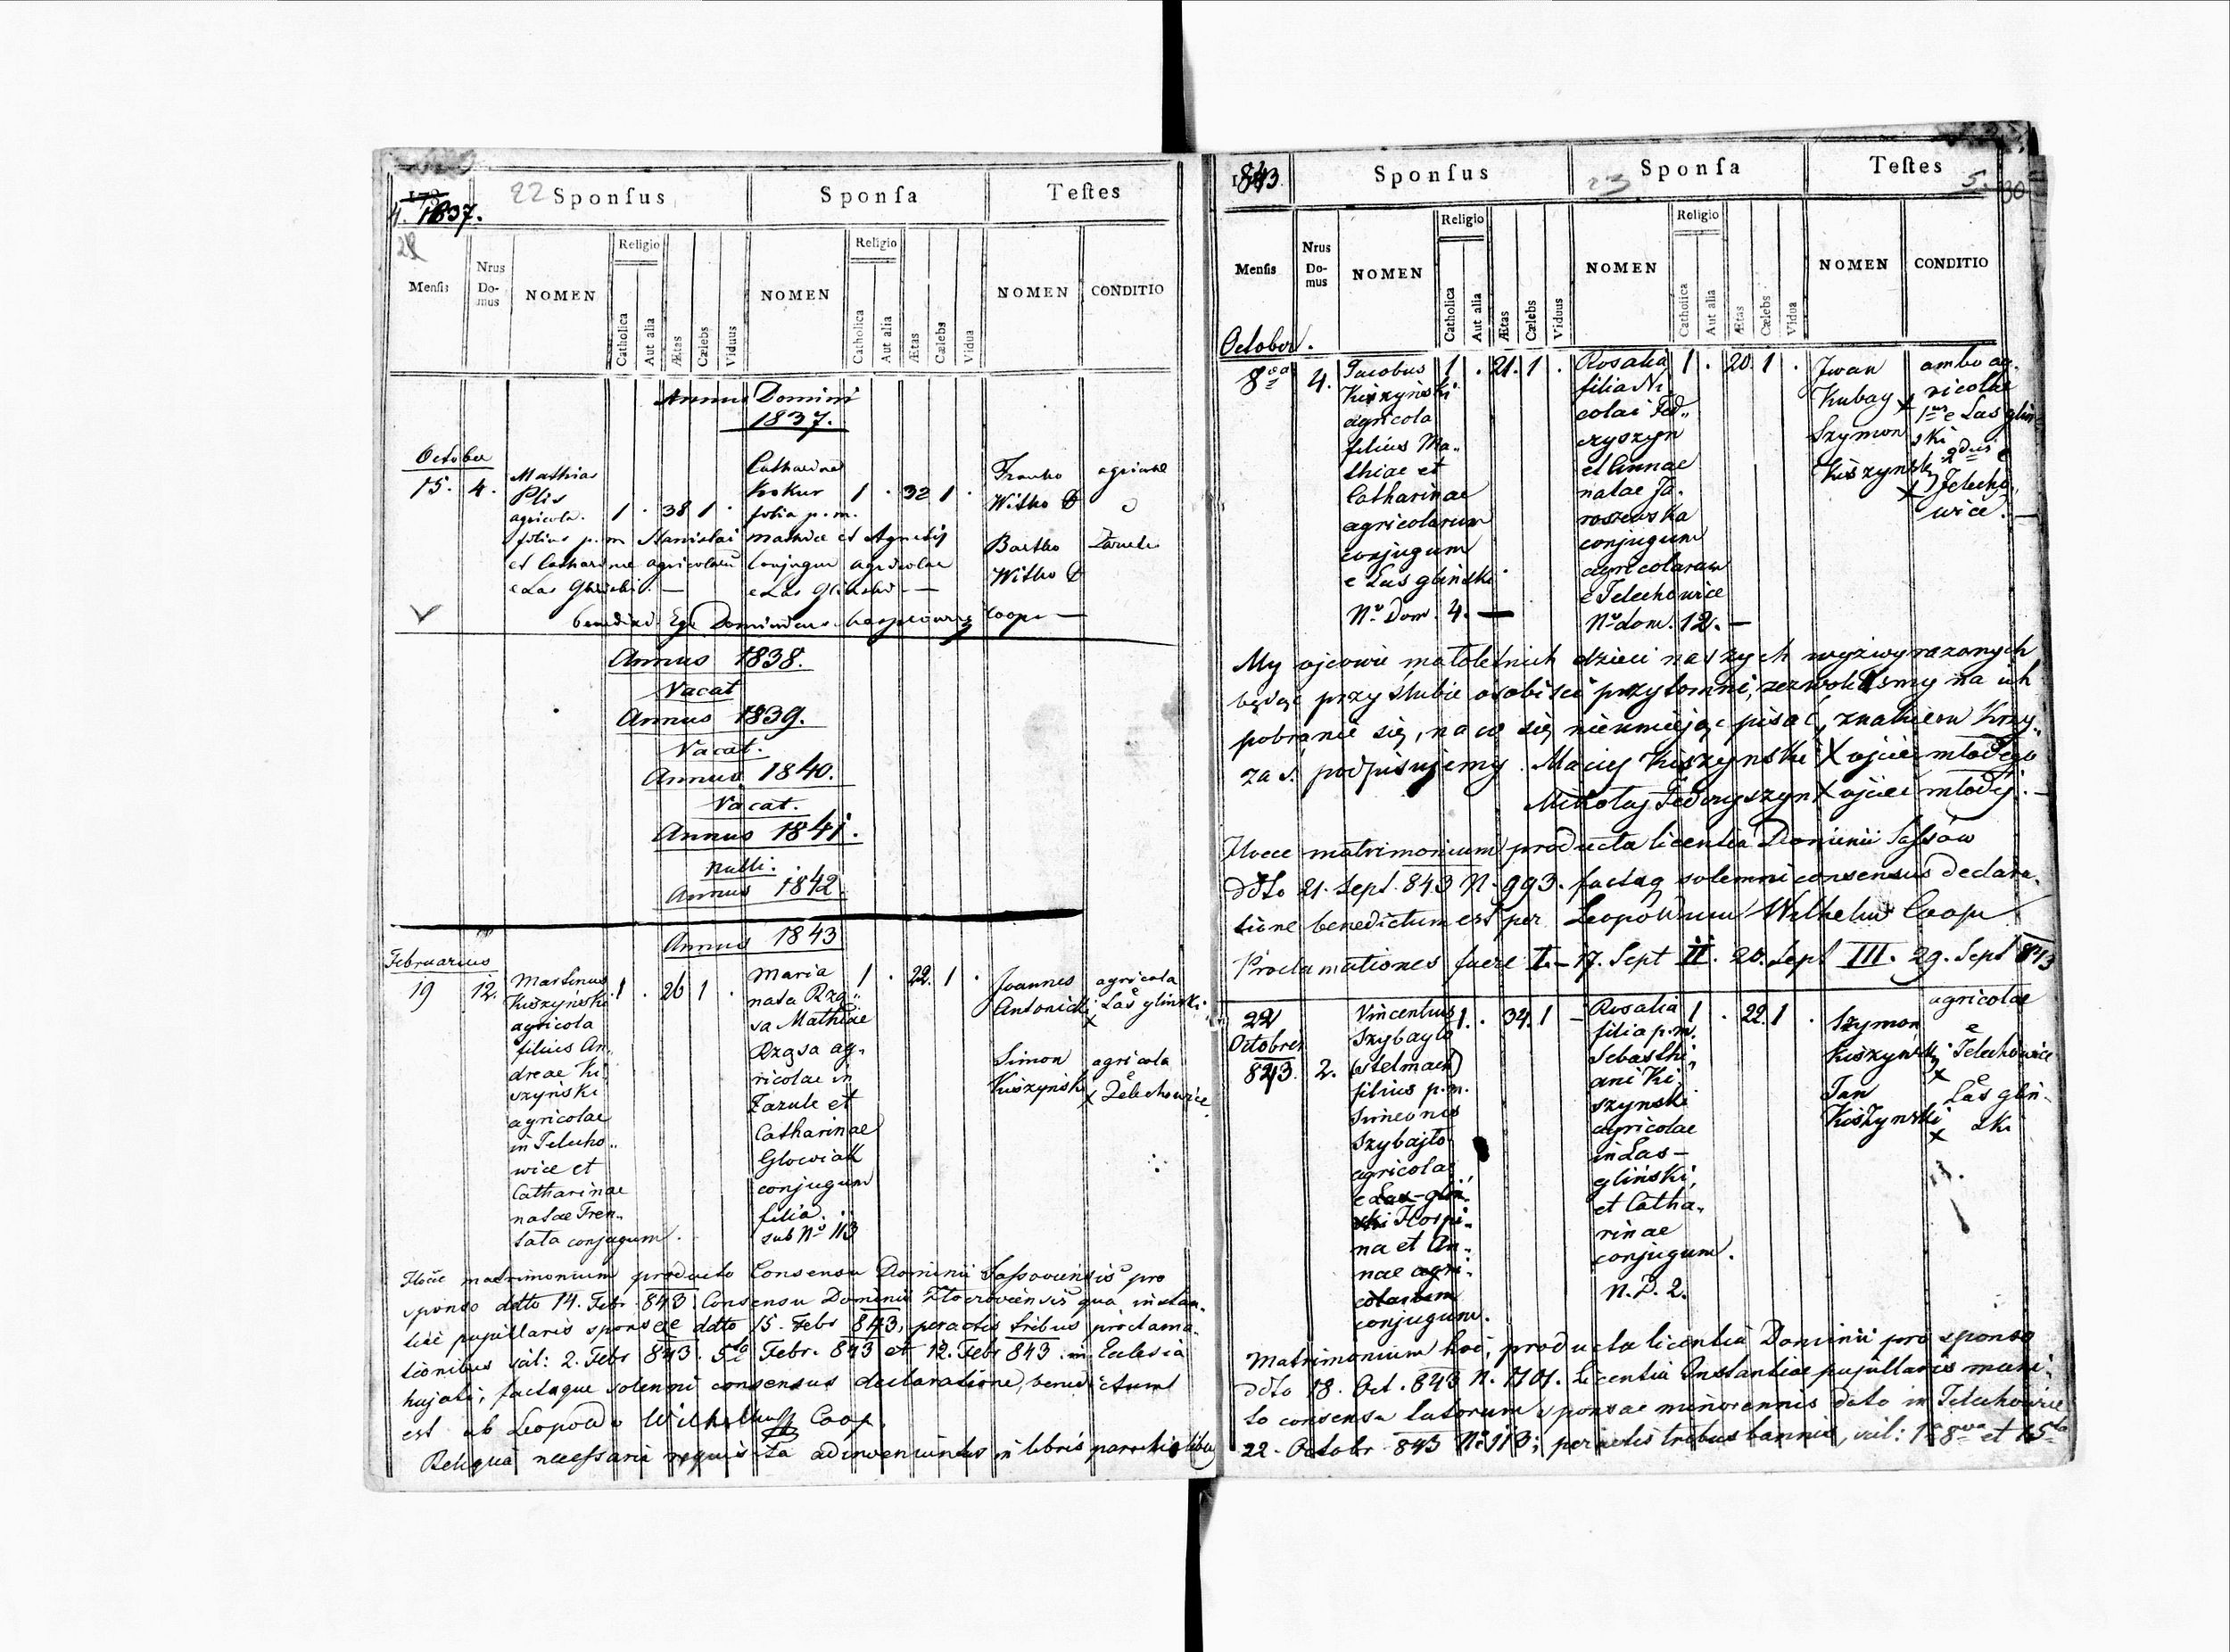 4. 1837.
22
Sponsus
Sponsa
Testes
Mensis
Nrus Do-mus
NOMEN
Religio
Catholica
Aut alia
Ætas
Cælebs
Viduus
NOMEN
Religio
Catholica
Aut alia
Ætas
Cælebs
Vidua
NOMEN
CONDITIO
Annus Domini
1837.
October
15. 4.
Mathias
Plis
agricola.
1 . 38 1 .
filius p.m. Stanislai
et Catharinae agricolarum
e Las Gliński. —
Catharina
Kokur
filia p.m.
1 . 32 1 .
Mathiae et Agnetis
conjugum agricolae
e Las Gliński. —
Franko
Witko
Bartko
Witko
agricolae
benedixi Ego Dominicus coop. —
Annus 1838.
Vacat
Annus 1839.
Vacat.
Annus 1840.
Vacat.
Annus 1841.
nulli.
Annus 1842.
Annus 1843
Februarius
19 12.
Martinus
Kiszyński
agricola
filius An-
dreae Ki-
szyński
agricolae
in Zelecho-
wice et
Catharinae
natae Fren-
sata conjugum.
1 . 26 1 .
Maria
nata Rzą-
sa Mathiae
Rząsa ag-
ricolae in
Zazule et
Catharinae
Glowiak
conjugum
filia.
sub No 113
1 . 22. 1 .
Joannes
Antonicki
agricola
e Las gliński
x
Simon
Kiszyński
agricola
e Zelechowice
x
Hocce matrimonium producto Consensu Dominii Sassoviensis pro
sponso ddto 14. Febr. 843 Consensu Dominii Złoczoviensis qua instan-
tiae pupillaris sponsae ddto 15. Febr 843, peractis tribus proclama-
tionibus scil: 2. Febr 843. 5ta Febr. 843 et 12. Febr 843. in Ecclesia
hujati, factaque solenni consensus declaratione, benedictum
est ab Leopoldo Wilhelm Coop.
Reliqua necessaria requisita adinveniuntur in libris parochialibus
843.
Sponsus
23
Sponsa
Testes
5.
30
Mensis
Nrus Do-mus
NOMEN
Religio
Catholica
Aut alia
Ætas
Cælebs
Viduus
NOMEN
Religio
Catholica
Aut alia
Ætas
Cælebs
Vidua
NOMEN
CONDITIO
October.
8va 4.
Jacobus
Kiszyński
agricola
filius Ma-
thiae et
Catharinae
agricolarum
conjugum
e Las gliński
No Dom. 4. —
1 . 21. 1 .
Rosalia
filia Ni-
colai Fed-
czyszyn
et Annae
natae Ja-
roszewska
conjugum
agricolarum
e Zelechowice
No dom. 12. —
1 . 20. 1 .
Iwan
Kubay x
Szymon
Kiszyński
x
ambo ag-
ricolae
1us e Las gliń-
ski
2dus e
Zelecho-
wice. —
My ojcowie małoletnich dzieci naszych wyżwyrażonych
będąc przy ślubie osobiście przytomni, zezwoliliśmy na ich
pobranie się, na co się nieumiejąc pisać, znakiem krzy-
ża ś. podpisujemy. Maciej Kiszyński X ojciec młodego
Mikołaj Fedczyszyn X ojciec młodej. —
Hocce matrimonium producta licentia Dominii Sassów
ddto 21. Sept. 843 N. 993. factaq solemni consensus declara-
tione benedictum est per Leopoldum Wilhelm Coop
Proclamationes fuere I. – 17. Sept II. 20. Sept III. 29. Sept 843
22
Octobris
843. 2.
Vincentius
Szybayło
(stelmach)
filius p.m.
Simeonis
Szybajło
agricolae
e Las-gliń-
ski Hospi-
na et An-
nae agri-
colarum
conjugum.
1. . 34. 1 –
Rosalia
filia p.m.
Sebasthi-
ani Ki-
szynski
agricolae
in Las-
gliński,
et Catha-
rinae
conjugum.
N. D. 2.
1 . 22. 1 .
Szymon
Kiszyński
x
Jan
Kiszynski
x
agricolae
e Zelechowice
e Las gliń-
ski
Matrimonium hoc, producta licentia Dominii pro sponso
ddto 18. Oct. 843 N. 1101. Licentia Instantiae pupillaris muni-
to consensu tutorum sponsae minorennis dato in Zelechowice
22. Octobr 843 No 113; peractis tribus bannis, scil: 1a 8va et 15ta